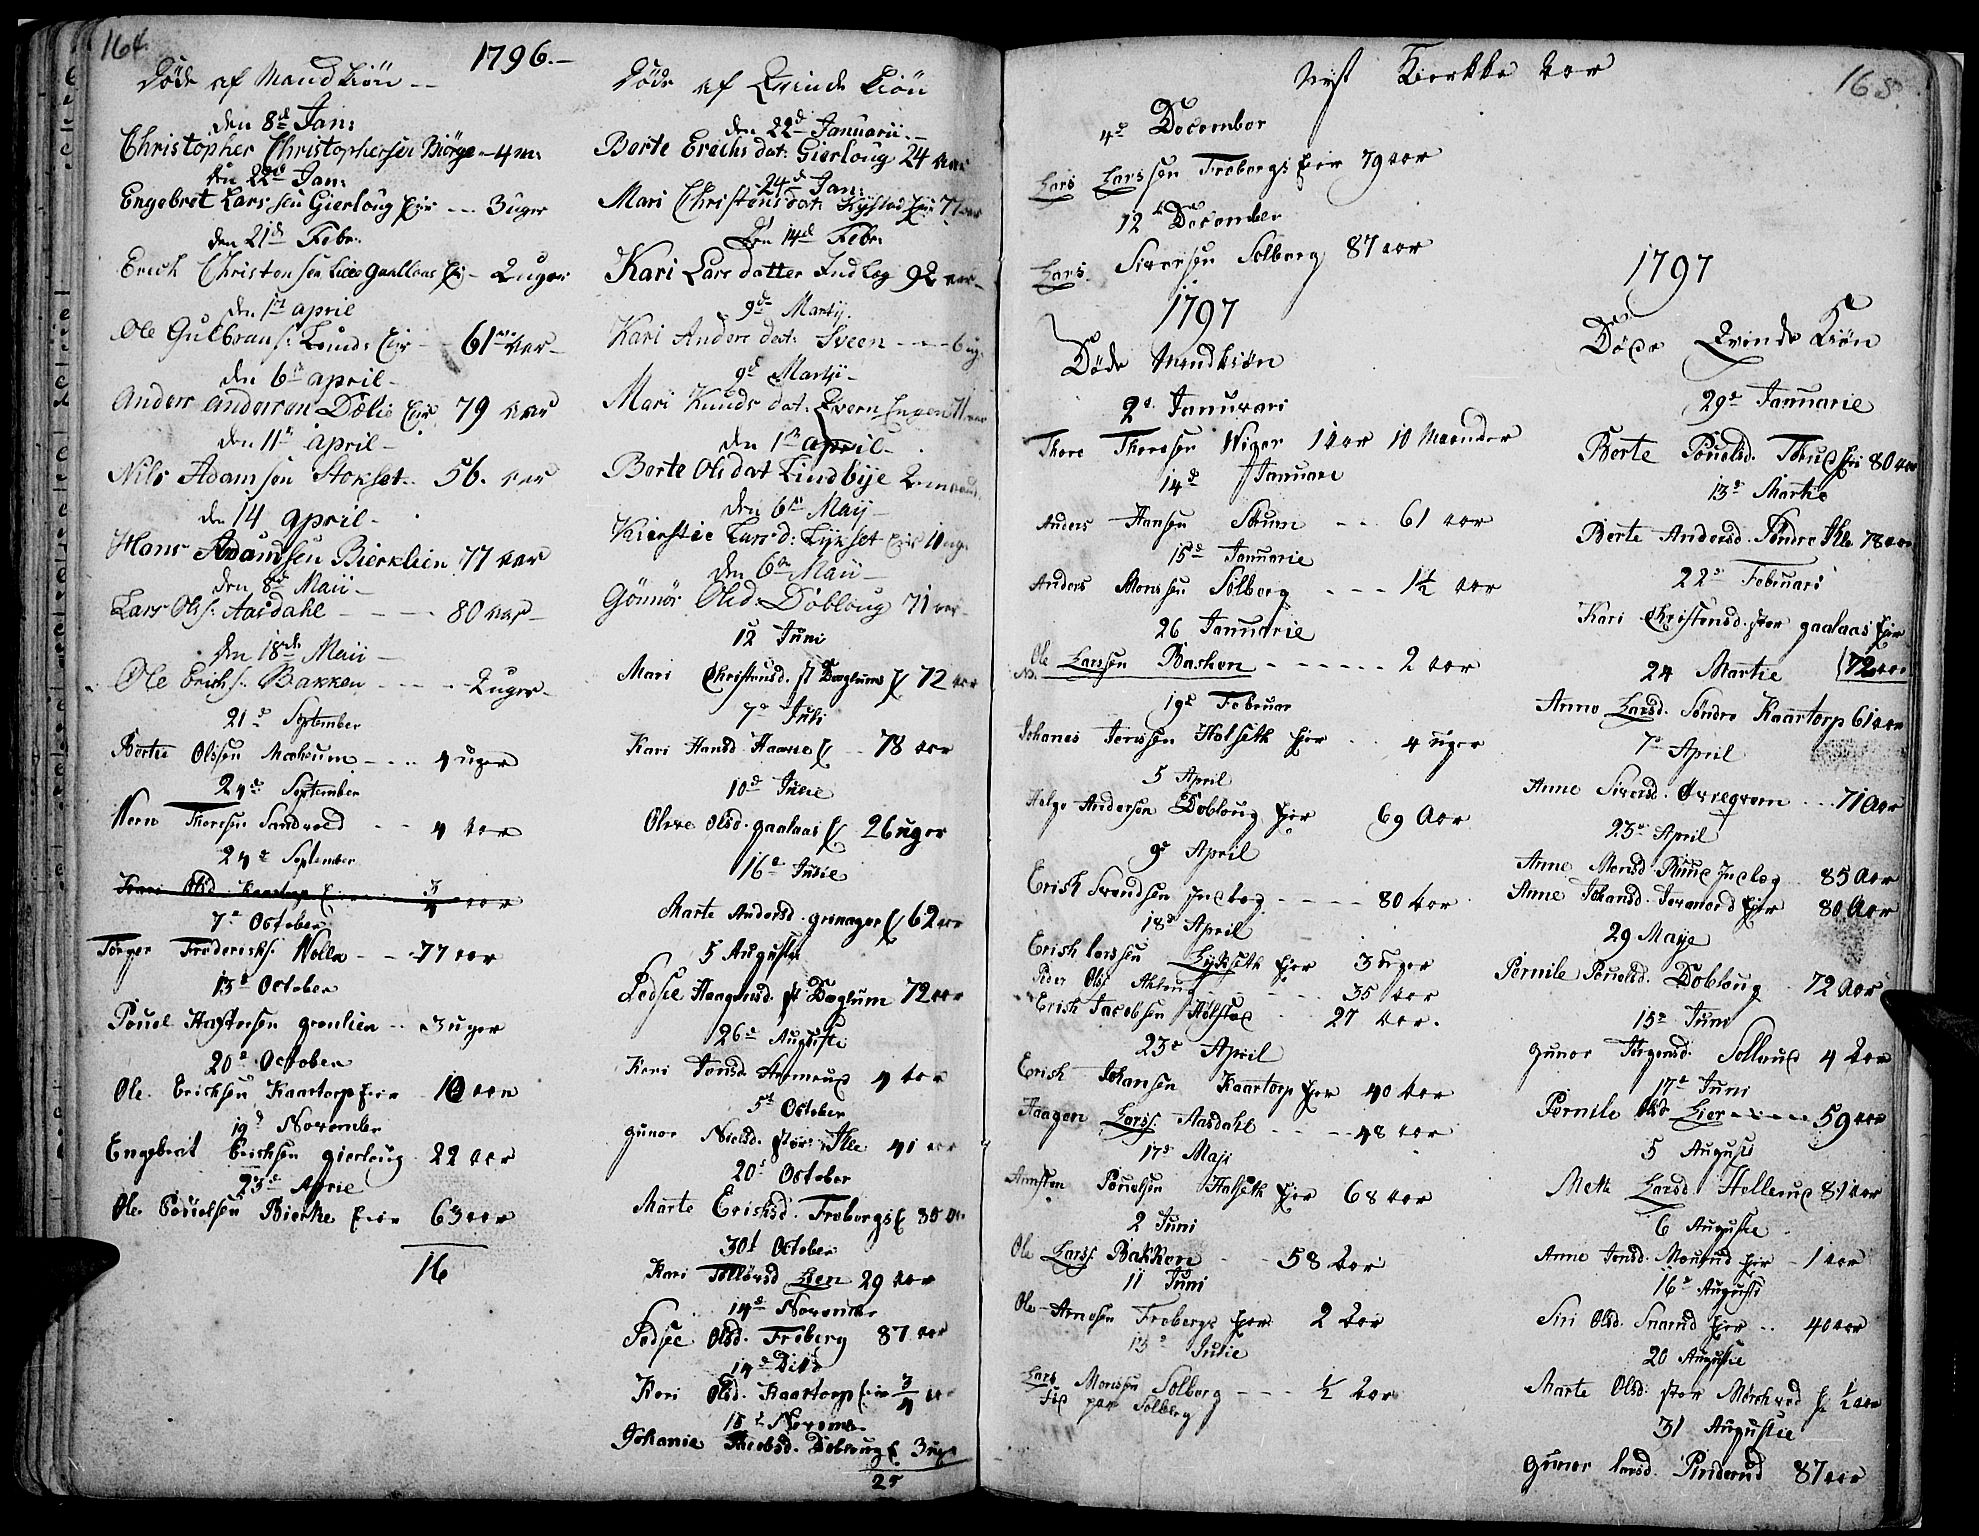 164.
1796.
Døde af Mand Kiön
den 8d Jan:
Christopher Christophersen Biörge - 4 m:
den 22d Jan:
Engebret Larssen Gierloug Eie --- 3 uger
den 21d Febr:
Erich Christensen Gaallaas Ei - 2 uger
den 1st april
Ole Gulbrans: Lund: Eie - 61 aar
den 6te april
Anders andersen Dælie Eie 79 aar
den 11te april
Nils Adamsen Stokset 56. aar
den 14 april
Hans Adamsen Bierklien 77 aar
den 8d Maii
Lars Ols: Aasdahl - - - - 80 aar
den 18de Maii
Ole Erichs: Bakken - - - - 2 uger
21d September
Olssen - - - 4 uger
24d September
Thoresen Sandvold - - 4 aar
24d September
Kari Olsd. Kaartorp Eie 3/4 aar
7d October
Torger Frederichs: Wolla - - - 77 aar
13d October
Pouel grønlien - - 3 uger
20d October
Ole Ericksen Kaartorp Eie - 10 aar
19d November
Engebret Ericksen gierloug 22 aar
23d Aprie
Ole Pouelsen Bierke Eie 63 aar
16
Døde af Qvinde Kiön
den 22d Januarii
Berte Erichs dat: Gierloug 24 aar
24d Jan:
Mari Christens dat: 77 aar
Den 14d Febr:
Kari Lars datter Indlæg 92 aar
9d Martij.
Kari Anders dat: Sveen - - - 6 ug:
9d Martij
Mari Knuds dat. Qvern Engen 71 aar
den 1te april
Berte Ols dat Lindbye 2
den 6te Maij
Kierstie Lars d: Lykset Eie 11 ug:
den 6te Maii
Gönnör Olsd: Dobloug 71 aar
12 Juni
Mari Christensd. 72 aar
7d Juli
Kari Hansd 78 aar
10d Julie
Olsd. gaalaas E 26 uger
16d Julie
Marte Andersd. grimager E 62 aar
5 Augusti
Haagensd. 72 aar
26d Augusti
Kari Jonsd 4 aar
5t October
gunor Nielsd. stor Ihle 41 aar
20d October
Marte Ericksd. Frobergs E 80
30t October
Kari Lien 29 aar
14d November
Olsd. Froberg 87 aar
14d Dito
Kari Olsd. Kaartorp Eie 3/4
18d Novemb.
Johanie Jacobsd. Dobloug E 3 uger
25
Vest Kierkke aar
165.
4d December
Lars Larssen Frobergs Eie 79 aar
12d December
Lars Siversen Solberg 87 aar
1797
Døde Mandkiön
2d Januvari
Thore Thoresen Wiger 1 aar 10 Maander
14d Januari
Anders Hansen - - - 61 aar
15d Januarie
Anders Monssen Solberg - - - 1½ aar
26 Januarie
Ole Larssen Basken - - - - - - 2 aar
19d Februar
Johanes Jenssen Halseth Eie - - - 4 uger
5 April
Helge Andersen Dobloug Eie 69 Aar
9d April
Erick Svendsen Indlæg - - - - - 80 aar
18d April
Erick larssen Lykseth Eie 3 uger
Peder Ols: 35 aar
Erick Jacobsen 27 aar.
23d April
Erick Johansen Kaartorp Eie 40 aar
Haagen Larss. Aasdahl - - - - 48 aar
17d Maji
Arnsten Pouelsen Halseth Eie 68 aar
2 Juni
Ole Larss. Bakken - - 58 aar
11 Juni
Ole Arnesen Frobergs Eie 2 aar
13d Julie
Lars Monssen Solberg - - - ½ aar
paa Solberg
1797
Døde Qvinde Kiön
29d Januarie
Berte Pouelsd. Eie 80 aar
13d Martie
Berte Andersd. Søndre Ihle 78 aar
22d Februari
Kari Christensd. stor gaalaas Eie
72 aar
24 Martie
Anne Larsd. Søndre Kaartorp 61 aar
7d April
Anne Siversd. - - - 71 Aar
23d April
Anne Monsd. Indlæg 85 Aar
Anne Johansd. Eie 80 Aar
29 Maye
Pernile Pouelsd. Dobloug 72 Aar
15d Juni
gunor Jörgensd. 4 aar
17d Juni
Pernile Olsd Lier - - - - 59 aar
5 Augusti
Mette Larsd. Hellerud 81 aar
6 Augusti
Anne Jensd. Eie - 1 aar
16d Augusti
Siri Olsd. Eie - - 40 aar
20 Augustie
Marte Olsd. stor E ½ aar
31 Augustie
gunor larsd. 87 aar